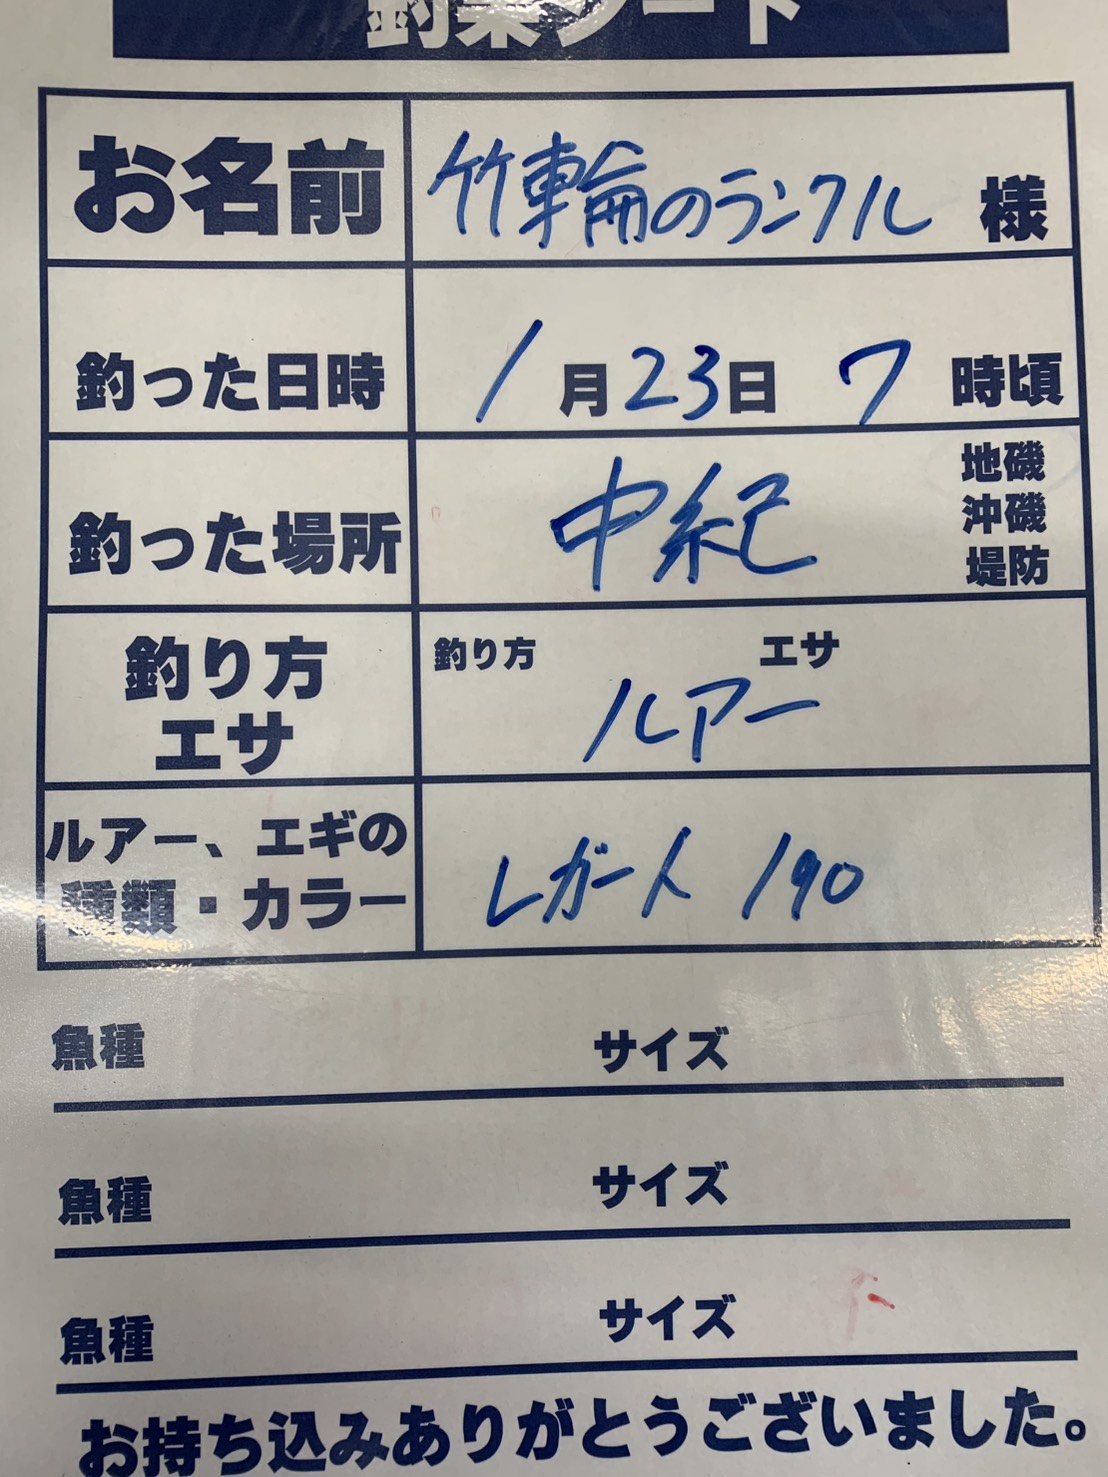 釣果シート
お名前 竹輪のランクル 様
釣った日時 1月23日 7時頃
釣った場所 中紀 地磯
沖磯
堤防
釣り方 釣り方 エサ
エサ ルアー
ルアー、エギの
種類・カラー レガート 190
魚種 サイズ
魚種 サイズ
魚種 サイズ
お持ち込みありがとうございました。